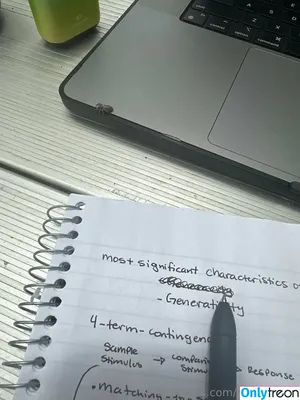 most significant characteristics o
- Generativity
4-term-contingenc
Sample Stimulus → compari Stimul Response
• Matching-to-s
.com/
Onlytreon